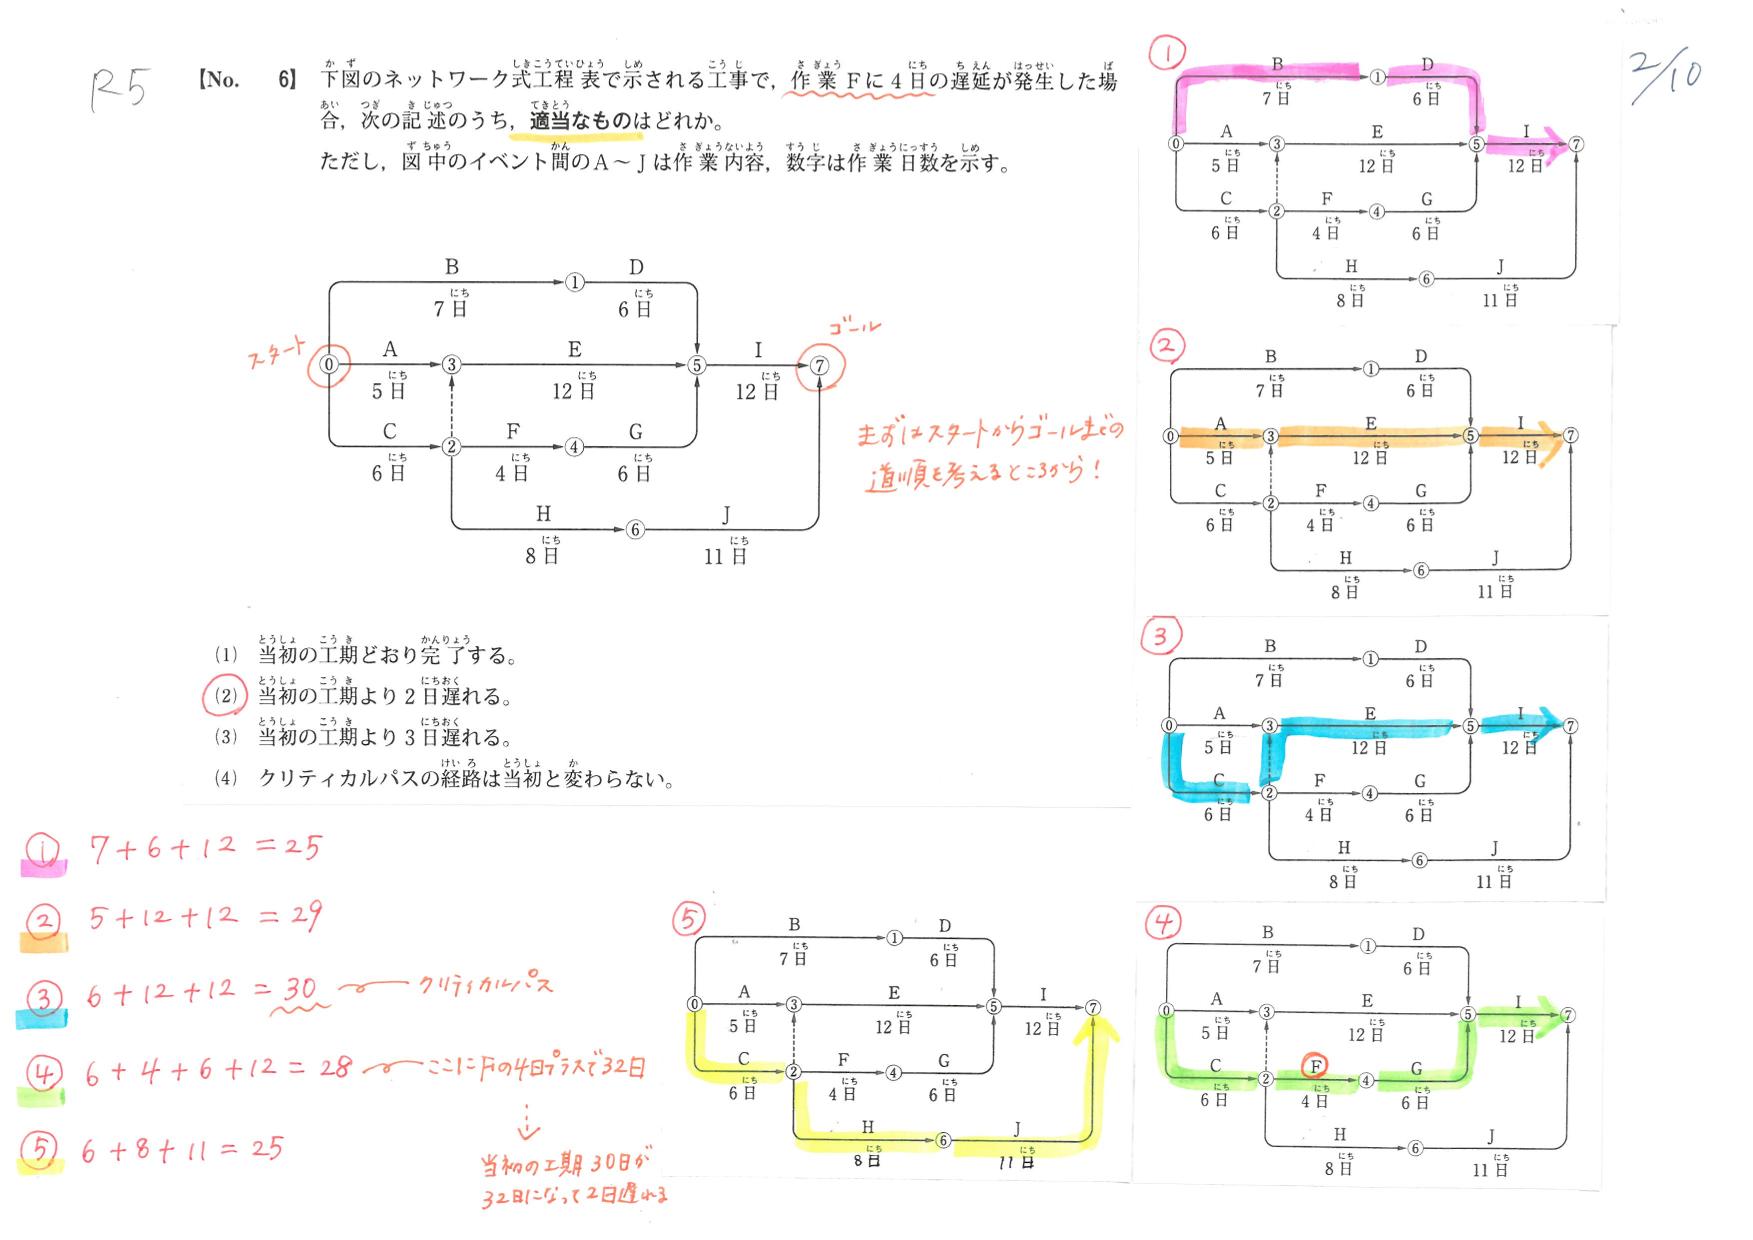 R5
2/10
【No. 6】 下図のネットワーク式工程表で示される工事で，作業Fに4日の遅延が発生した場
合，次の記述のうち，適当なものはどれか。
ただし，図中のイベント間のA～Jは作業内容，数字は作業日数を示す。
B
D
7日
6日
スタート
ゴール
⓪
①
A
③
E
⑤
I
⑦
5日
12日
12日
C
②
F
④
G
6日
4日
6日
H
⑥
J
8日
11日
まずはスタートからゴールまでの
道順を考えるところから！
(1) 当初の工期どおり完了する。
(2) 当初の工期より2日遅れる。
(3) 当初の工期より3日遅れる。
(4) クリティカルパスの経路は当初と変わらない。
① 7+6+12=25
② 5+12+12=29
③ 6+12+12=30 クリティカルパス
④ 6+4+6+12=28 ここにFの4日プラスで32日
⑤ 6+8+11=25
当初の工期30日が
32日になって2日遅れる
①
B
①
D
7日
6日
⓪
A
③
E
⑤
I
⑦
5日
12日
12日
C
②
F
④
G
6日
4日
6日
H
⑥
J
8日
11日
②
B
①
D
7日
6日
⓪
A
③
E
⑤
I
⑦
5日
12日
12日
C
②
F
④
G
6日
4日
6日
H
⑥
J
8日
11日
③
B
①
D
7日
6日
⓪
A
③
E
⑤
I
⑦
5日
12日
12日
C
②
F
④
G
6日
4日
6日
H
⑥
J
8日
11日
⑤
B
①
D
7日
6日
⓪
A
③
E
⑤
I
⑦
5日
12日
12日
C
②
F
④
G
6日
4日
6日
H
⑥
J
8日
11日
④
B
①
D
7日
6日
⓪
A
③
E
⑤
I
⑦
5日
12日
12日
C
②
F
④
G
6日
4日
6日
H
⑥
J
8日
11日